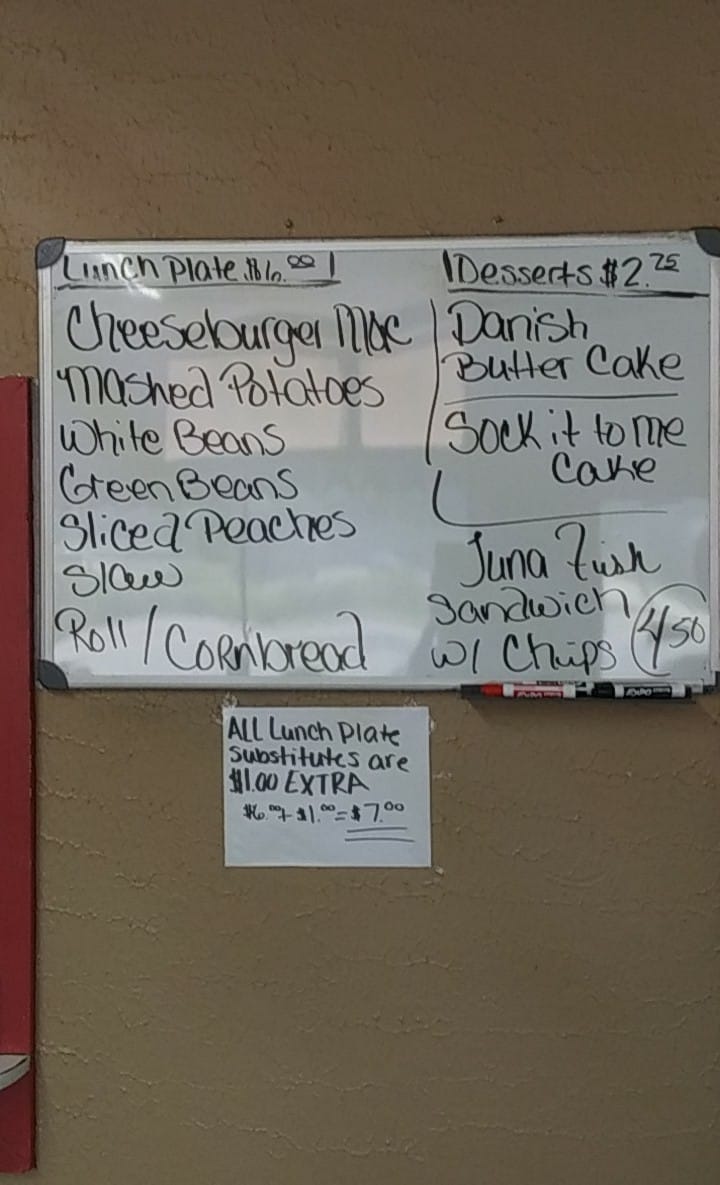 Lunch Plate $6.00
Cheeseburger Mac
Mashed Potatoes
White Beans
Green Beans
Sliced Peaches
Slaw
Roll / Cornbread
Desserts $2.75
Danish
Butter Cake
Sock it to me
Cake
Tuna Fish
Sandwich
w/ Chips 4.50
ALL Lunch Plate
Substitutes are
$1.00 EXTRA
$6.00 + $1.00 = $7.00
EXPO
EXPO